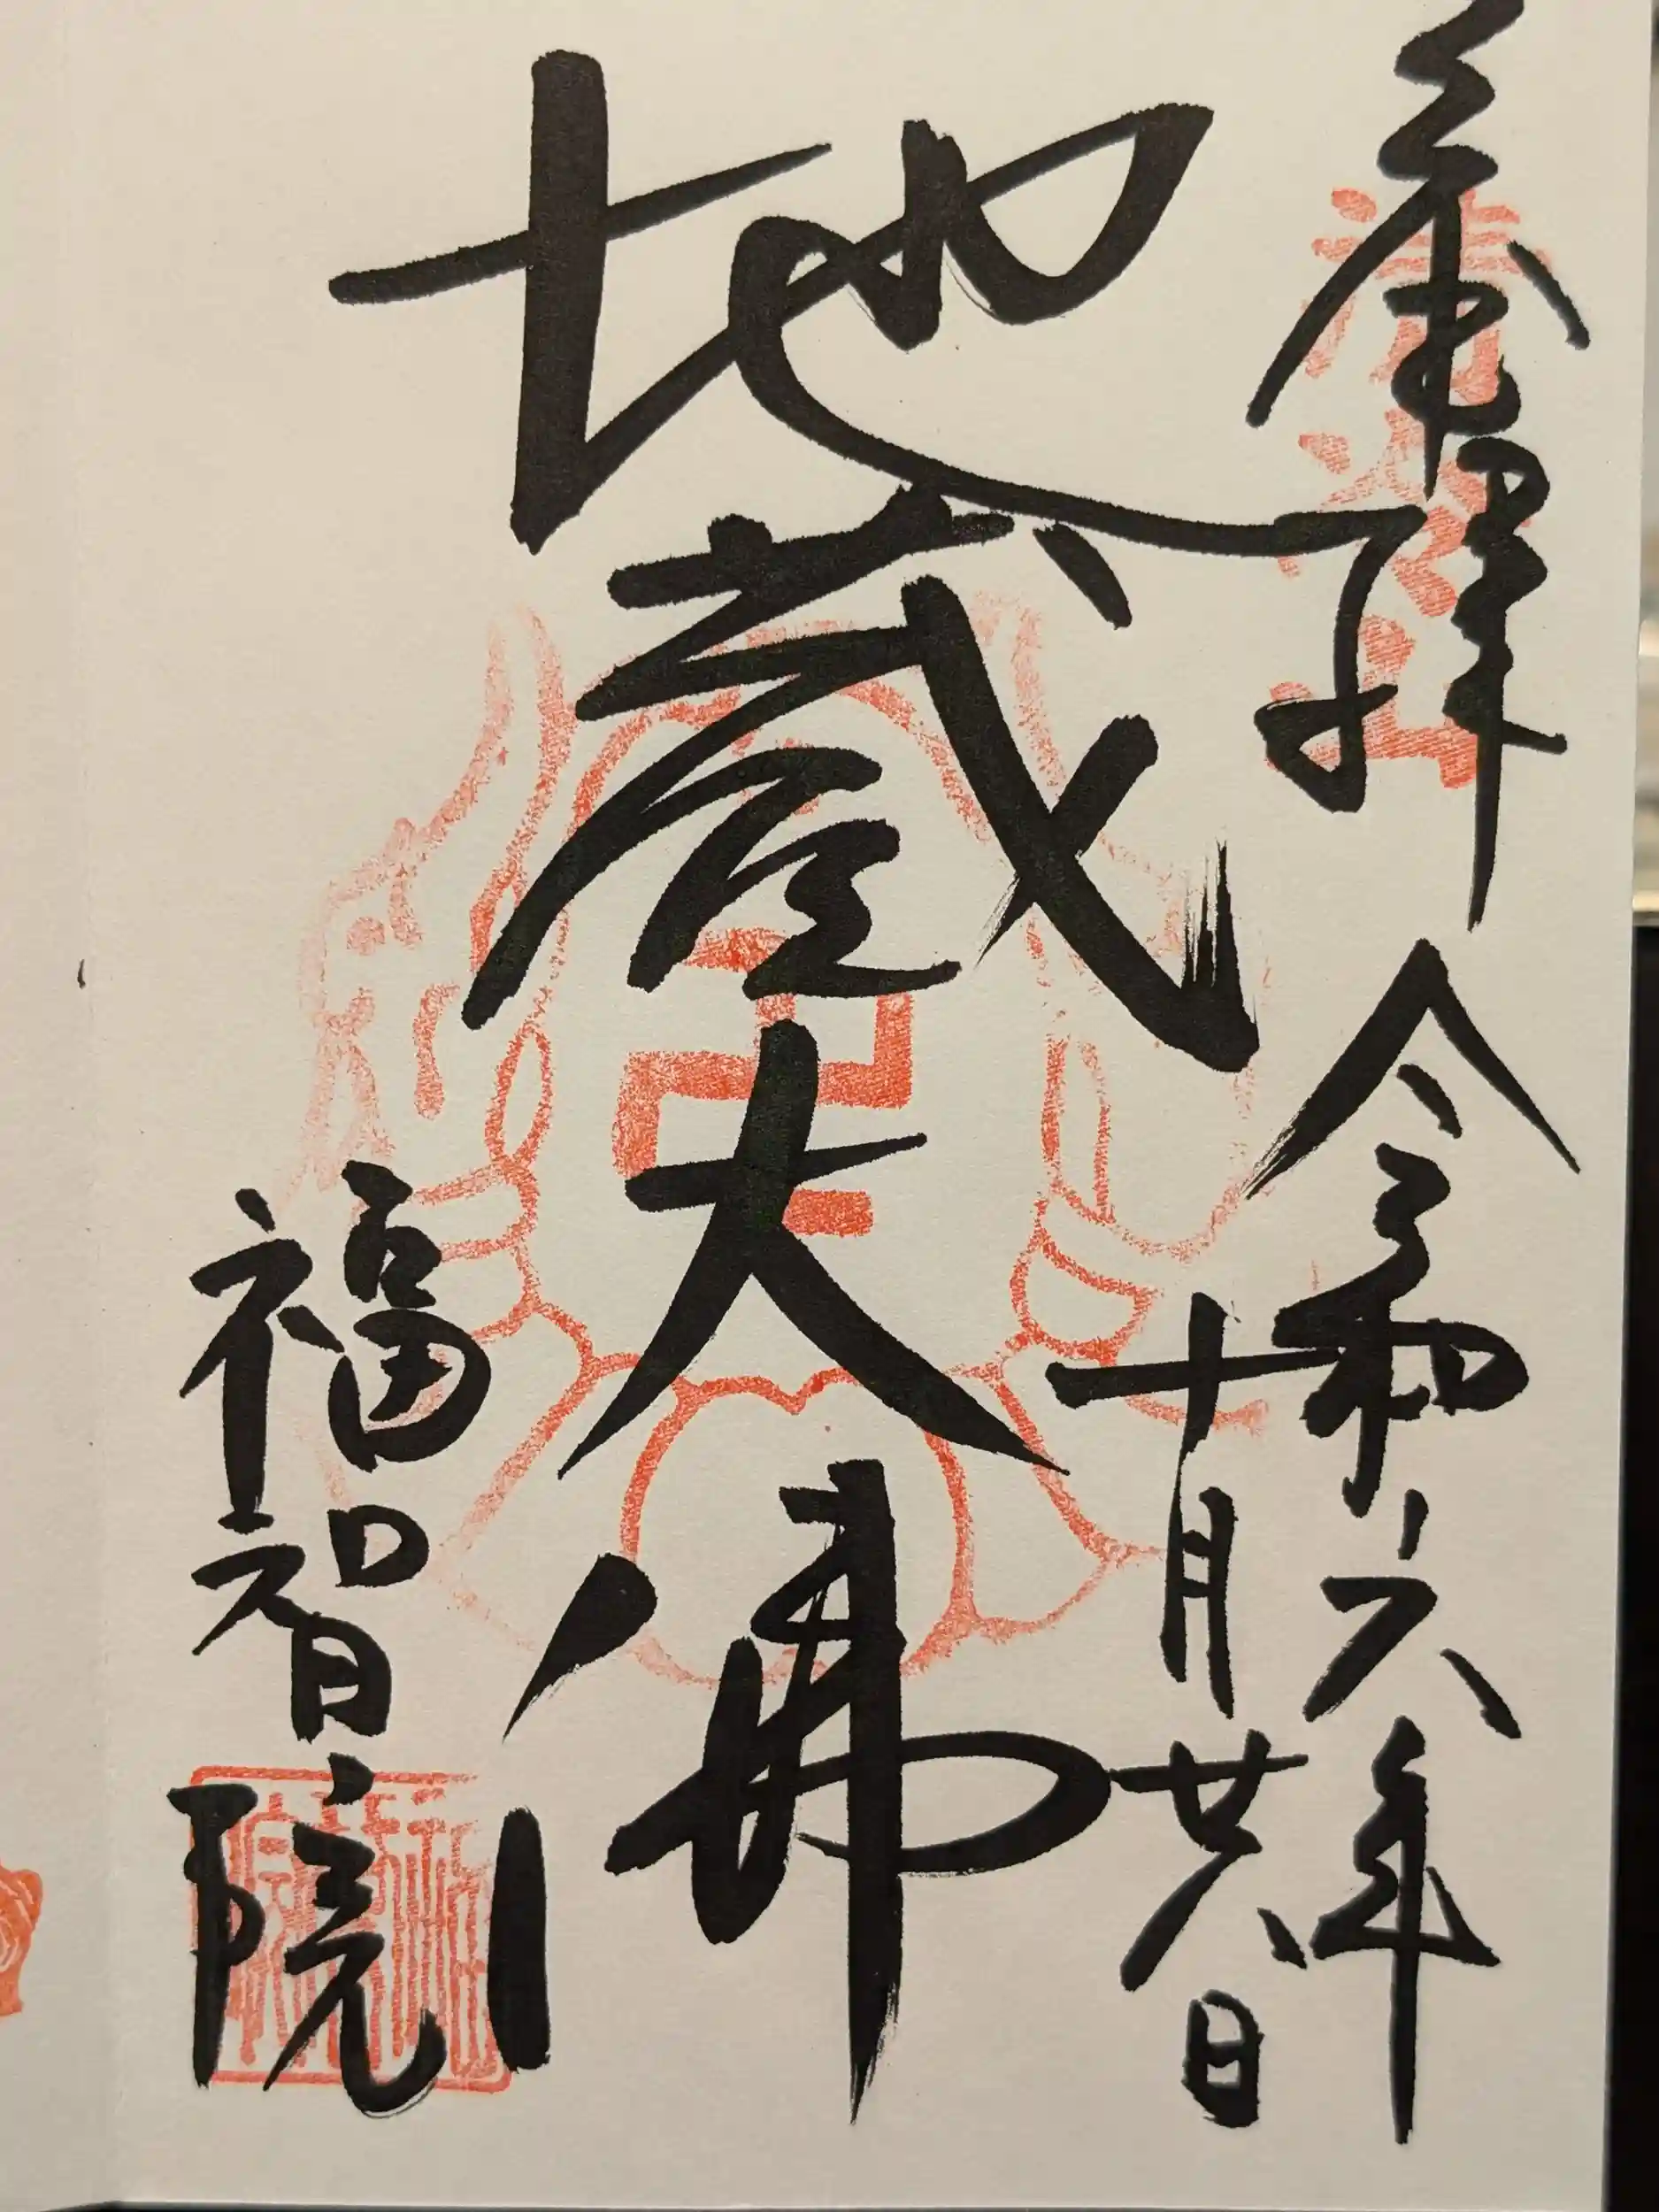 奉拝 令和六年
十月廿八日
地蔵大佛
福智院